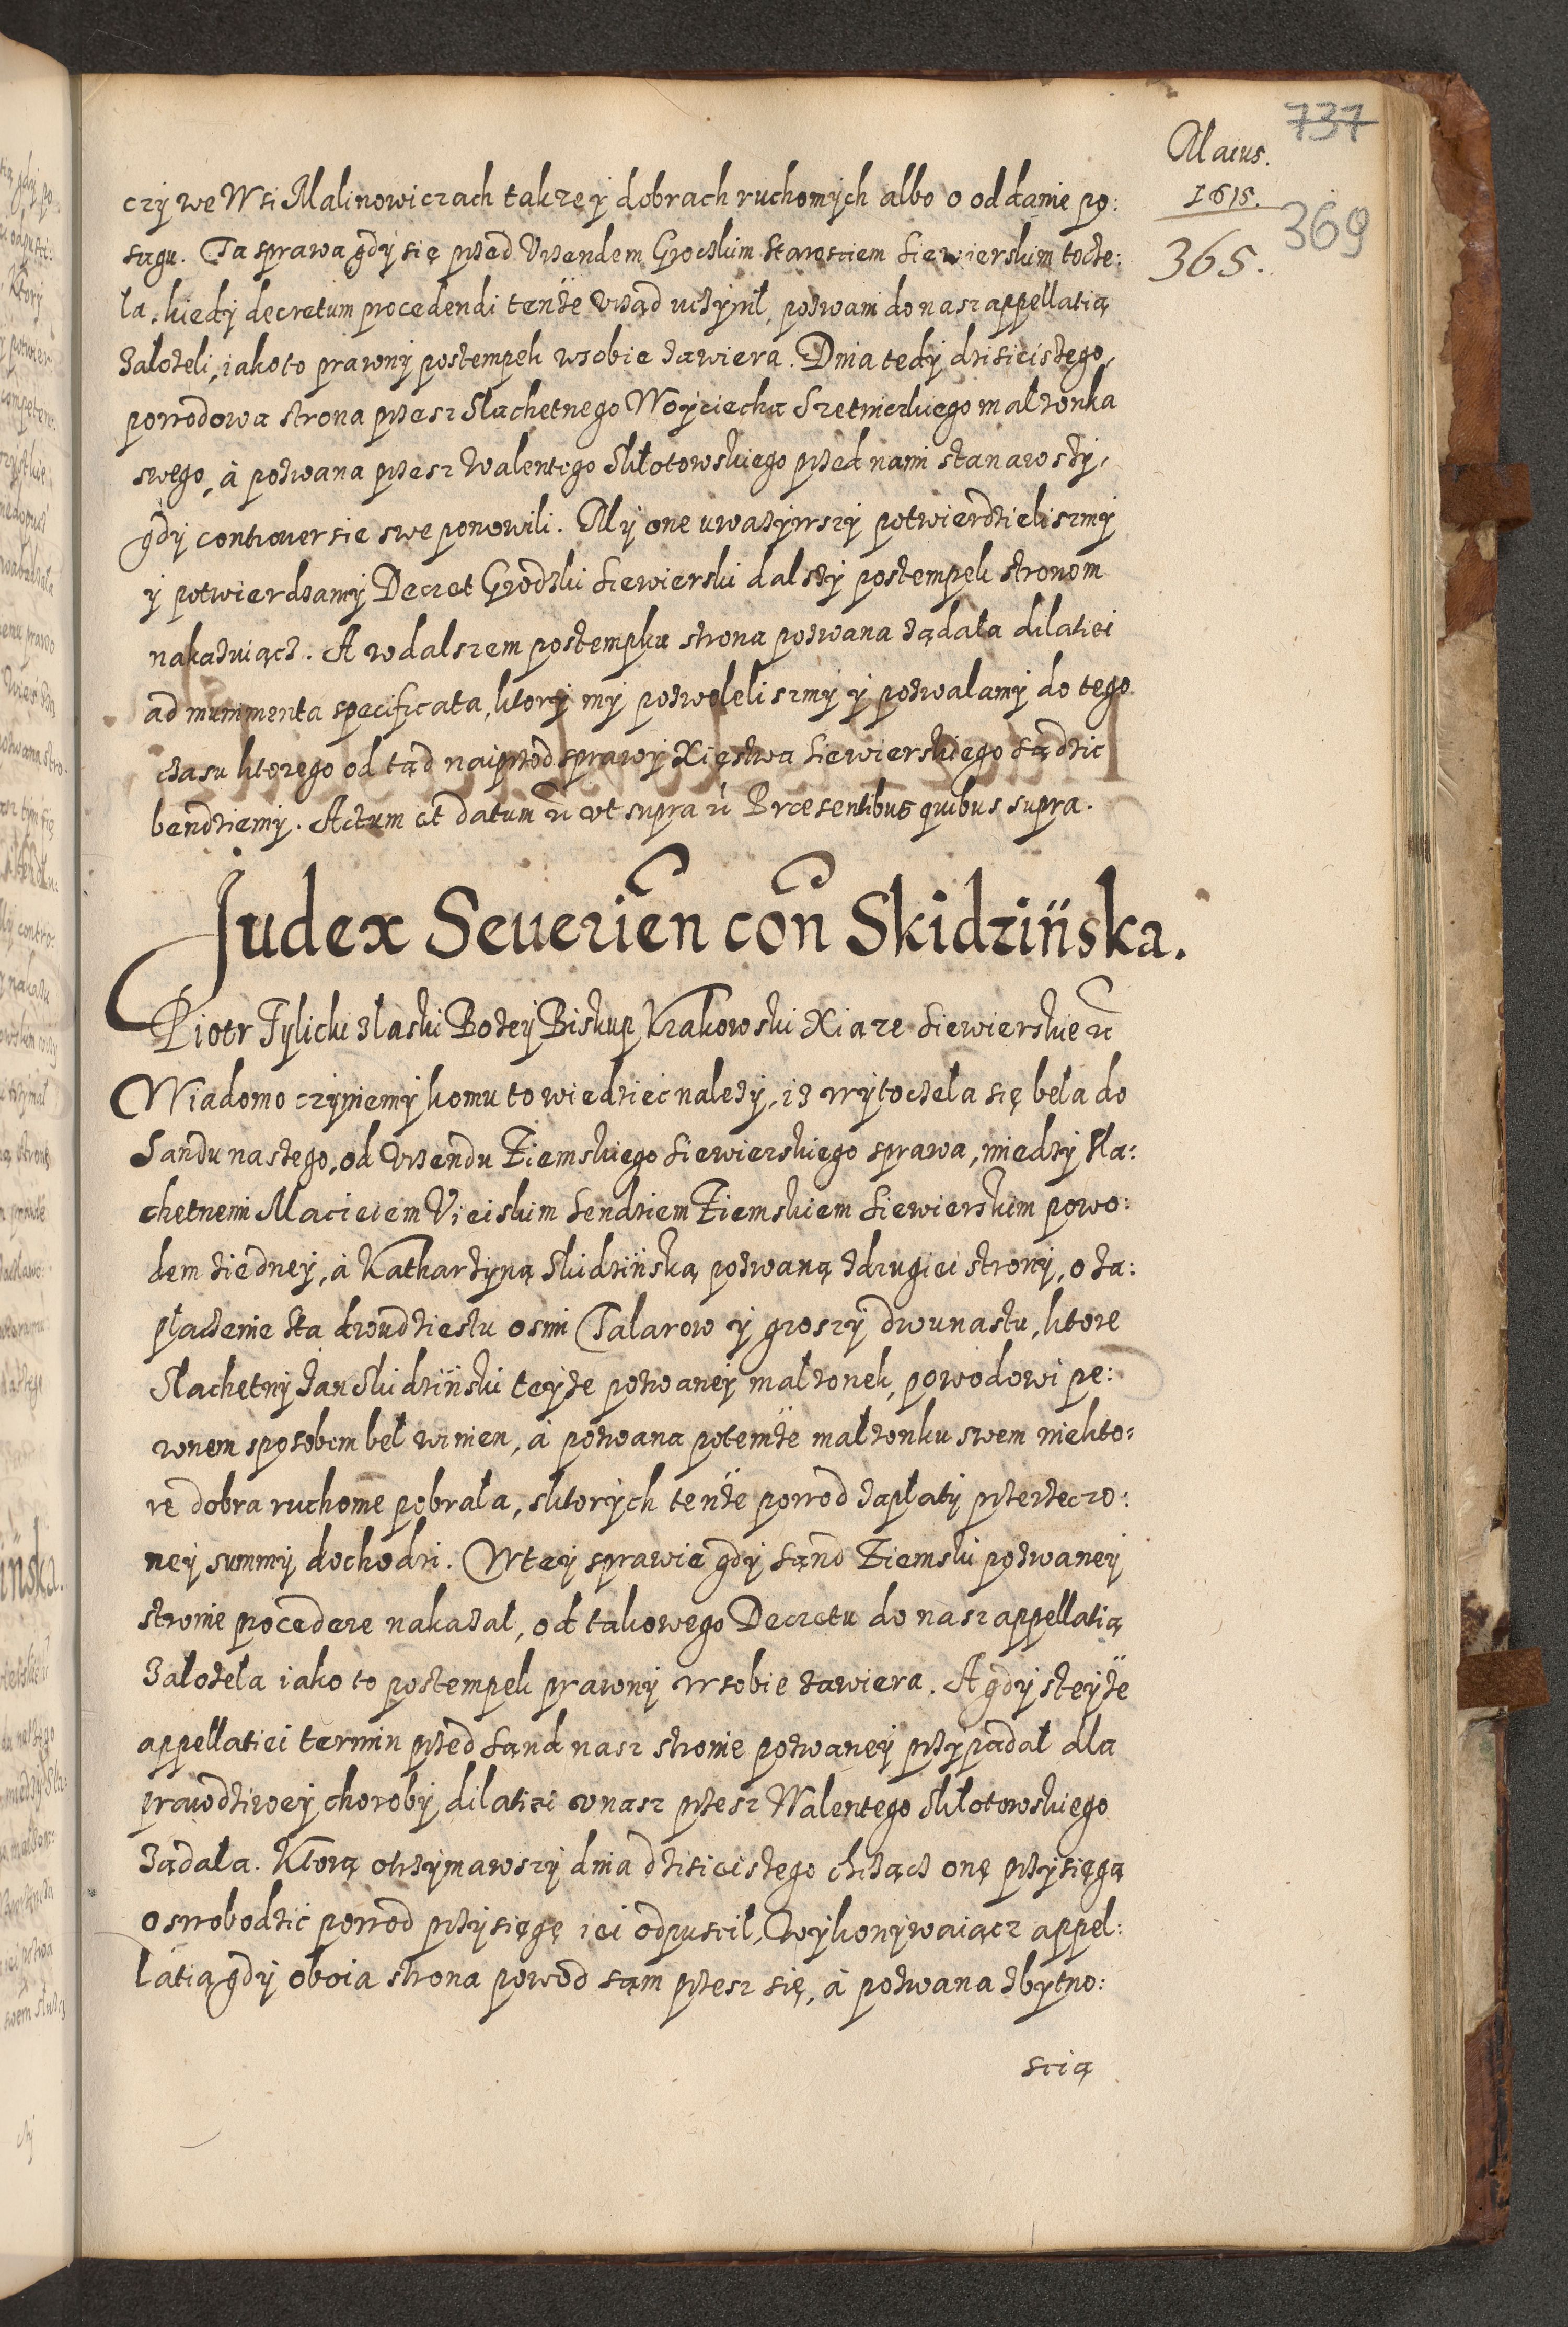 737
Maius.
1615.
369
365.
czy we Wsi Malinowiczach takze y dobrach ruchomych albo o oddanie po:
sagu. Ta sprawa gdy się przed Vrzendem Grockim Starostiem Siewierskim tocze:
la, kiedy decretum procedendi tenze Vrząd uczynił, pozwani do nasz appellatią
założeli, iako to prawny postempek wsobie zawiera. Dnia tedy dzisieiszego,
powodowa strona przesz Slachetnego Woyciecha Szetniczkiego małzonka
swego, à pozwana przesz Walentego Skłotowskiego przed nami stanawszy,
gdy controversie swe ponowili. My one uwazywszy potwierdzieliszmy
y potwierdzamy Decret Grodzki Siewierski dalszy postempek stronom
nakazuiącz. A wdalszem postempku strona pozwana ządała dilatiei
ad munimenta specificata, ktory my pozwoleliszmy y pozwalamy do tego
czasu ktorego od tąd naiprzod sprawy Xięstwa Siewierskiego sądzic
bendziemy. Actum et datum rc vt supra rc Præsentibus quibus supra.
Judex Seuerien con Skidzińska.
Piotr Tylicki złaski Bozey Biskup Krakowski Xiaze Siewierskie rc
Wiadomo czyniemy komu to wiedzieć nalezy, iz wytoczela się bela do
Sandu naszego, od Vrzendu Ziemskiego Siewierskiego sprawa, miedzy Sla:
chetnemi Macieiem Vieiskim Sendziem Ziemskiem Siewierskim powo:
dem ziedney, à Katharzyną Skidzińską pozwaną zdrugiei strony, o za:
płaczenie sta dwudziestu osmi Talarow y groszy dwunastu, ktore
Slachetny Jan Skidziński teyze pozwaney małzonek, powodowi pe:
wnem sposobem beł winien, à pozwana potemze małzonku swem niekto:
re dobra ruchome pobrała, sktorych tenże powod zapłaty przerzeczo:
ney summy dochodzi. Wtey sprawie gdy Sąnd Ziemski pozwaney
stronie procedere nakazał, od takowego Decretu do nasz appellatią
założeła iako to postempek prawny wsobie zawiera. A gdy steyże
appellatiei termin przed Sąnd nasz stronie pozwaney przypadał dla
prawdziwey choroby dilatiei unasz przesz Walentego Skłotowskiego
ządała. Ktorą otrzymawszy dnia dzisieiszego chcącz onę przysięgą
oswobodzić powod przysięgę iei odpuscił, Wykonywaiącz appel:
latią gdy oboia strona powod sam przesz się, à pozwana zbytno:
scią